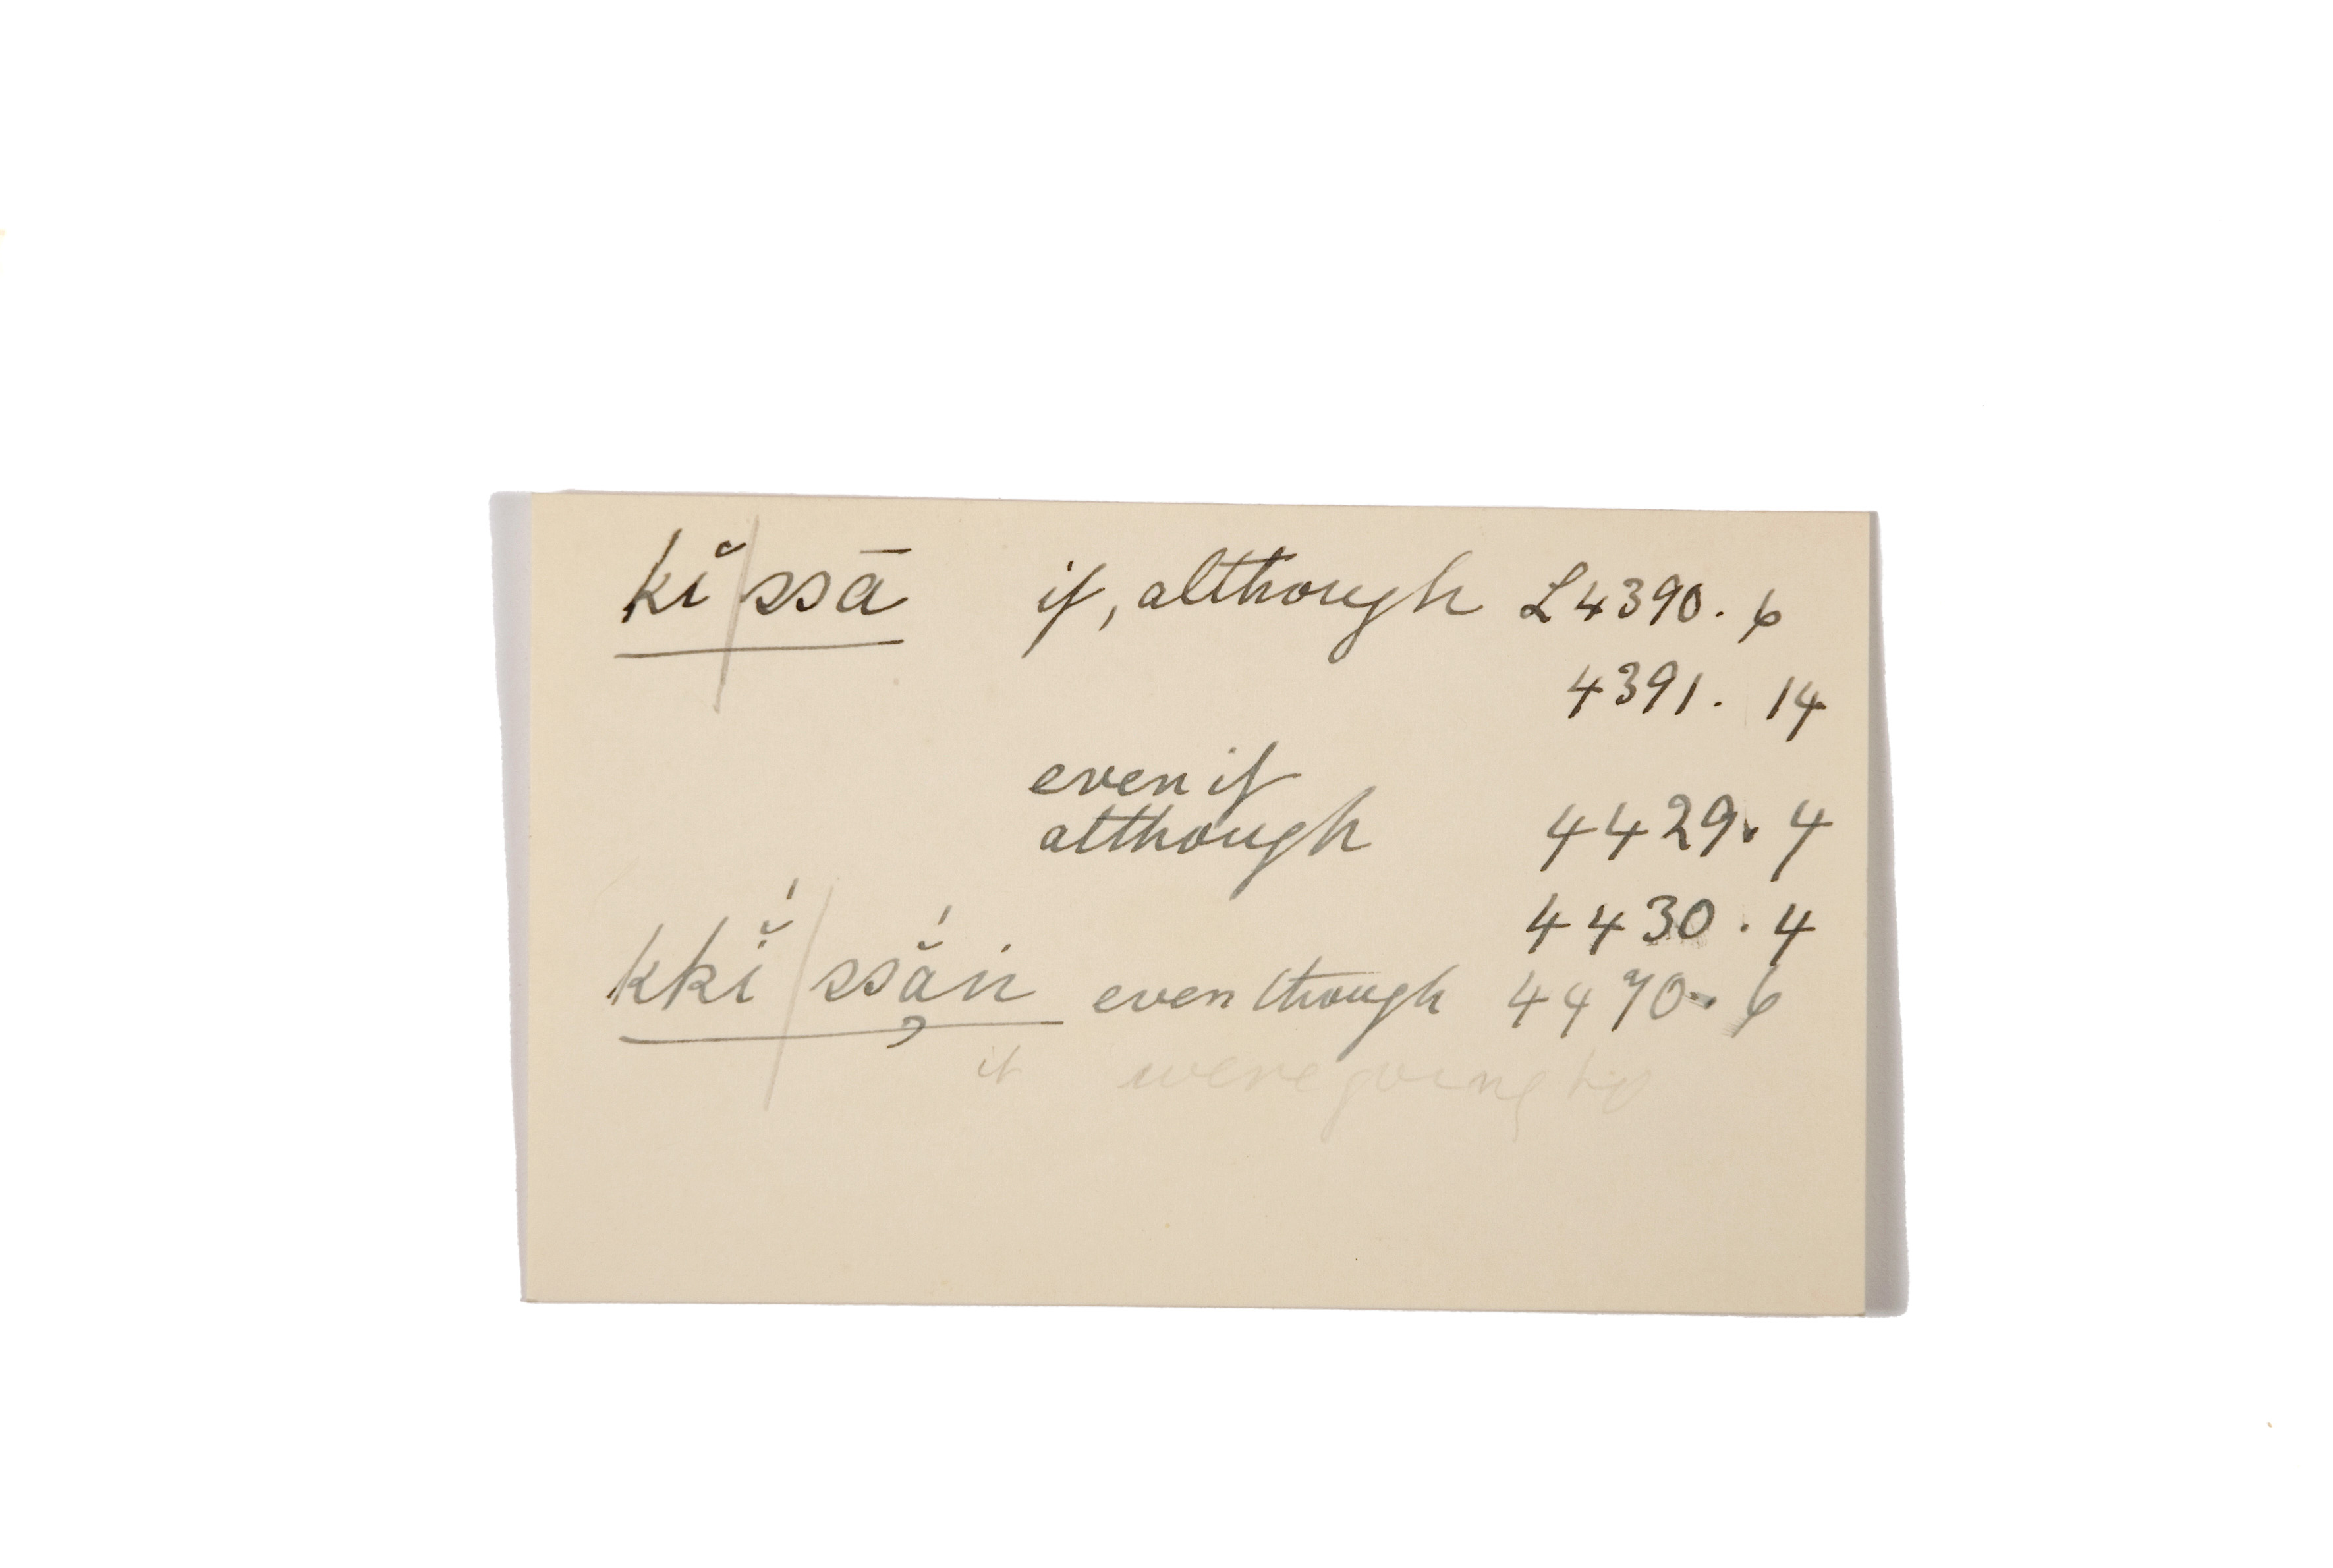 kĭ/ssā if, although L4390. 6
4391. 14
even if
although 4429. 4
4430. 4
kkĭ́/ssắń even though 4470. 6
it were going to